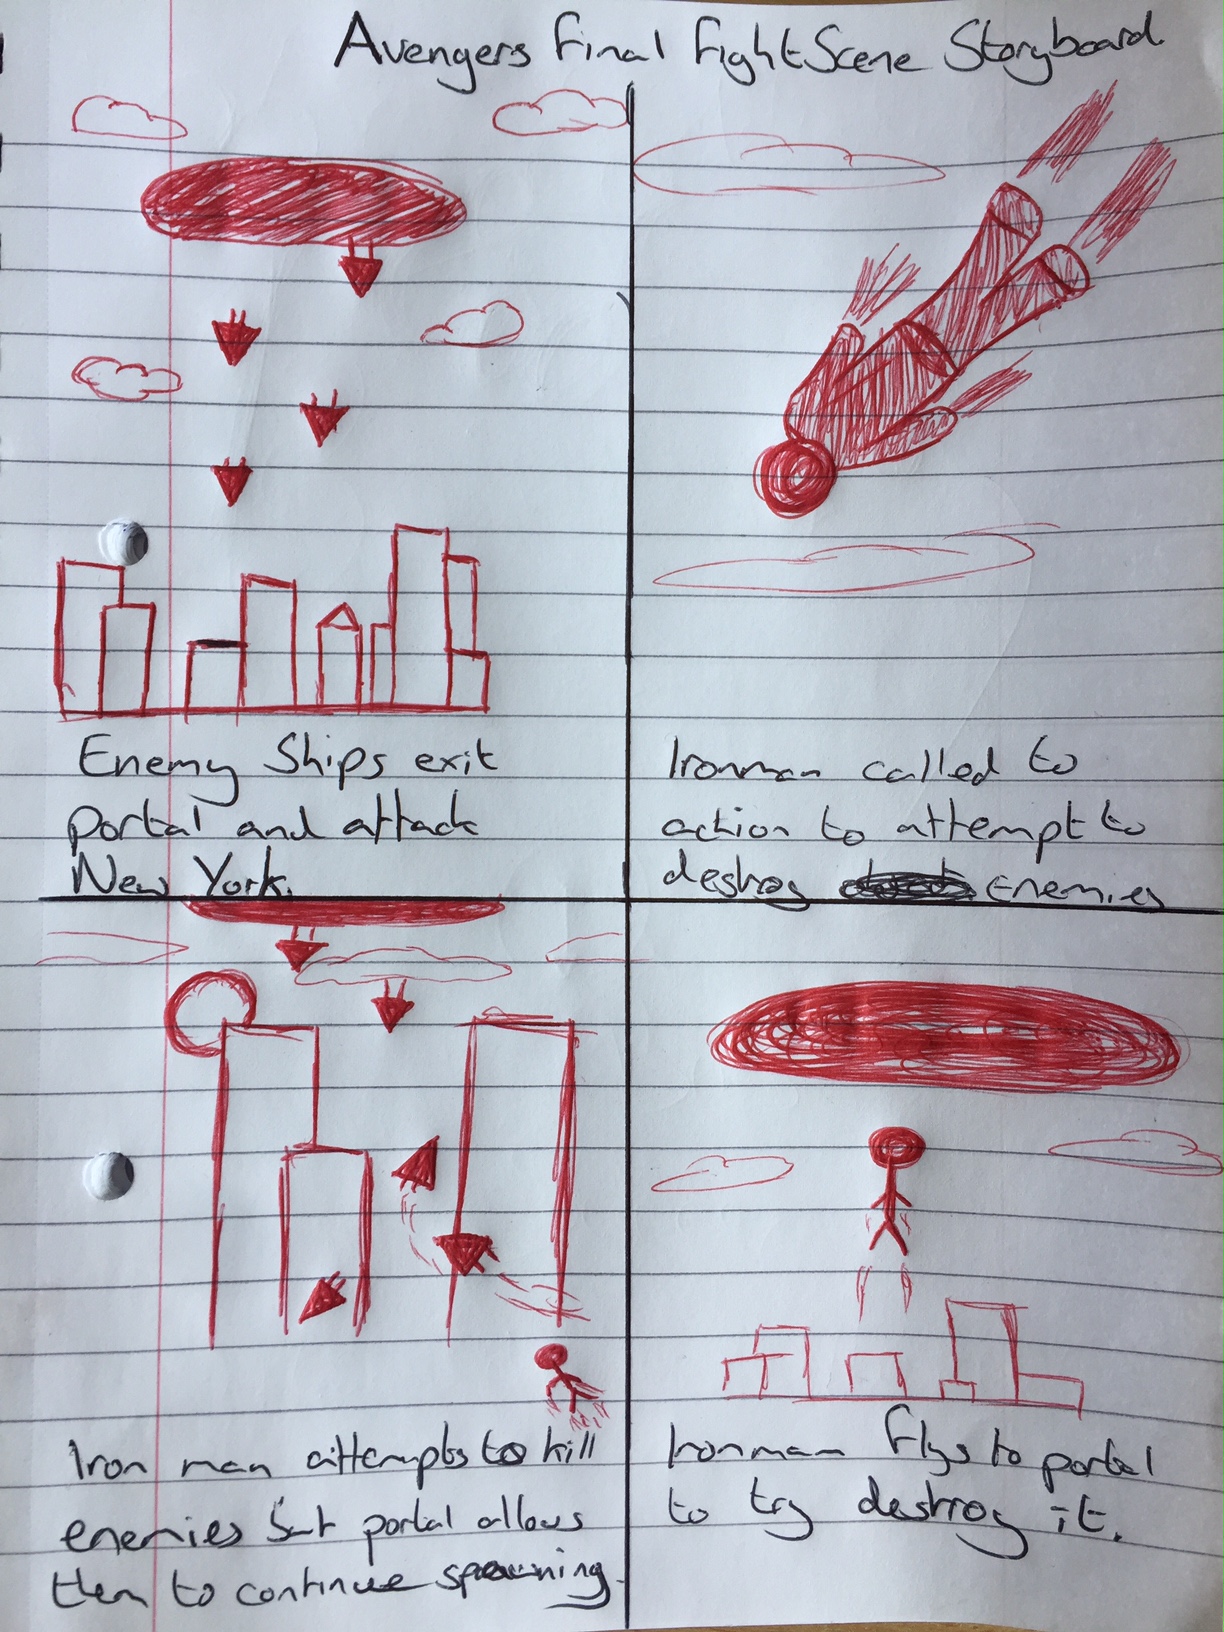 Avengers Final Fight Scene Storyboard.
Enemy Ships exit
portal and attack
New York.
Ironman called to
action to attempt to
destroy Enemies
Iron man attempts to kill
enemies but portal allows
them to continue spawning.
Ironman flys to portal
to try destroy it.